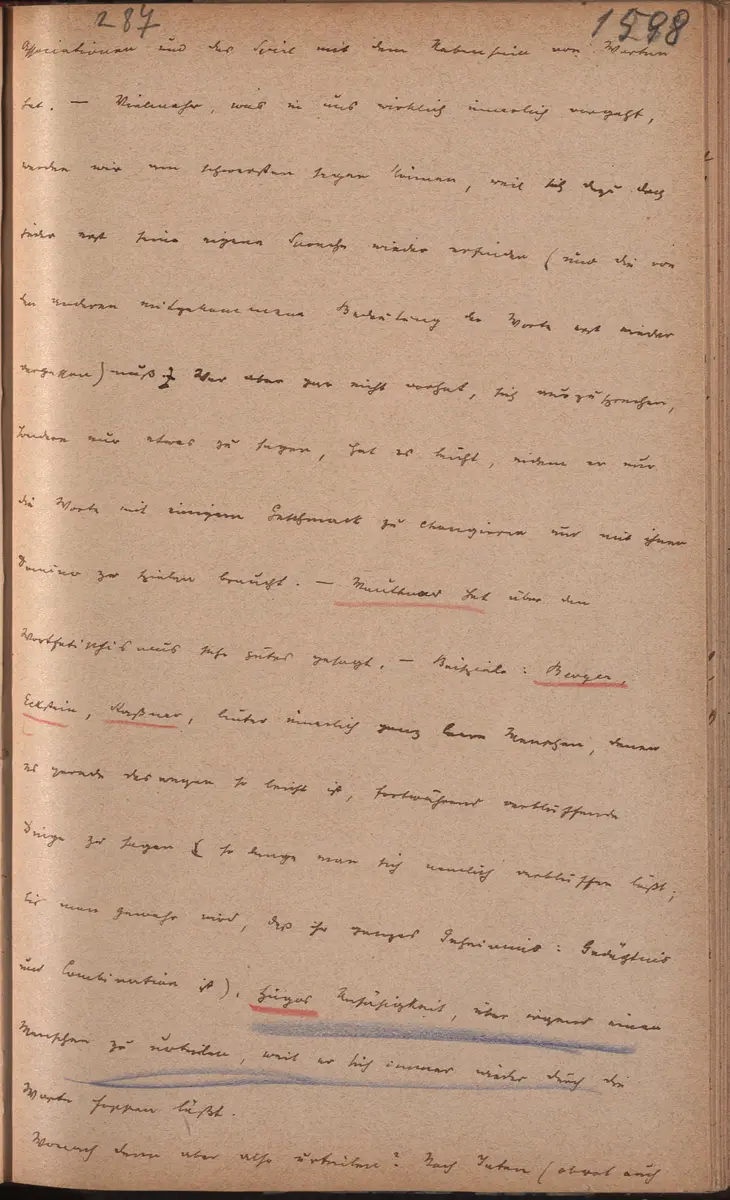 287
1598
Associationen und das Spiel mit dem Nebensinn von Worten
hat. — Vielmehr, was in uns wirklich innerlich vorgeht,
werden wir am schwersten sagen können, weil sich dazu doch
jeder erst seine eigene Sprache wieder erfinden (und die von
den anderen mitgekommene Bedeutung der Worte erst wieder
vergessen) muß. Wer aber gar nicht vorhat, sich auszusprechen,
sondern nur etwas zu sagen, hat es leicht, indem er nur
die Worte mit einigem Geschmack zu changieren und mit ihnen
Domino zu spielen braucht. — Mauthner hat über den
Wortfetischismus sehr gutes gesagt. — Beispiele: Berger,
Eckstein, Kaßner, lauter innerlich ganz leere Menschen, denen
es gerade deswegen so leicht ist, fortwährend verblüffende
Dinge zu sagen (so lange man sich nemlich verblüffen läßt;
bis man gewahr wird, daß ihr ganzes Geheimnis: Gedächtnis
und Combination ist), Hugos Unfähigkeit, über irgend einen
Menschen zu urteilen, weil er sich immer wieder durch die
Worte foppen läßt.
Wonach denn aber also urteilen? Nach Taten (obwol auch